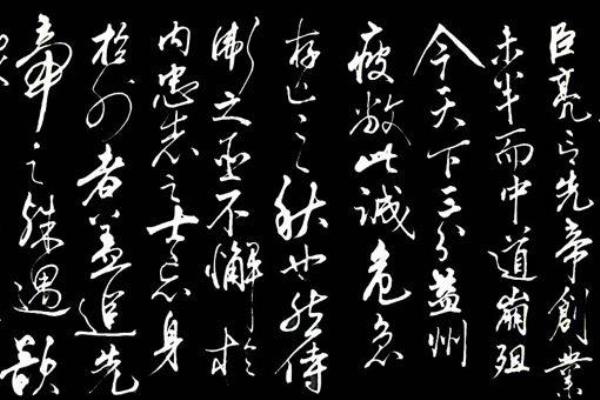 臣亮言先帝創業
未半而中道崩殂
今天下三分益州
疲敝此誠危急
存亡之秋也然侍
衛之臣不懈於
内忠志之士忘身
於外者蓋追先
帝之殊遇欲